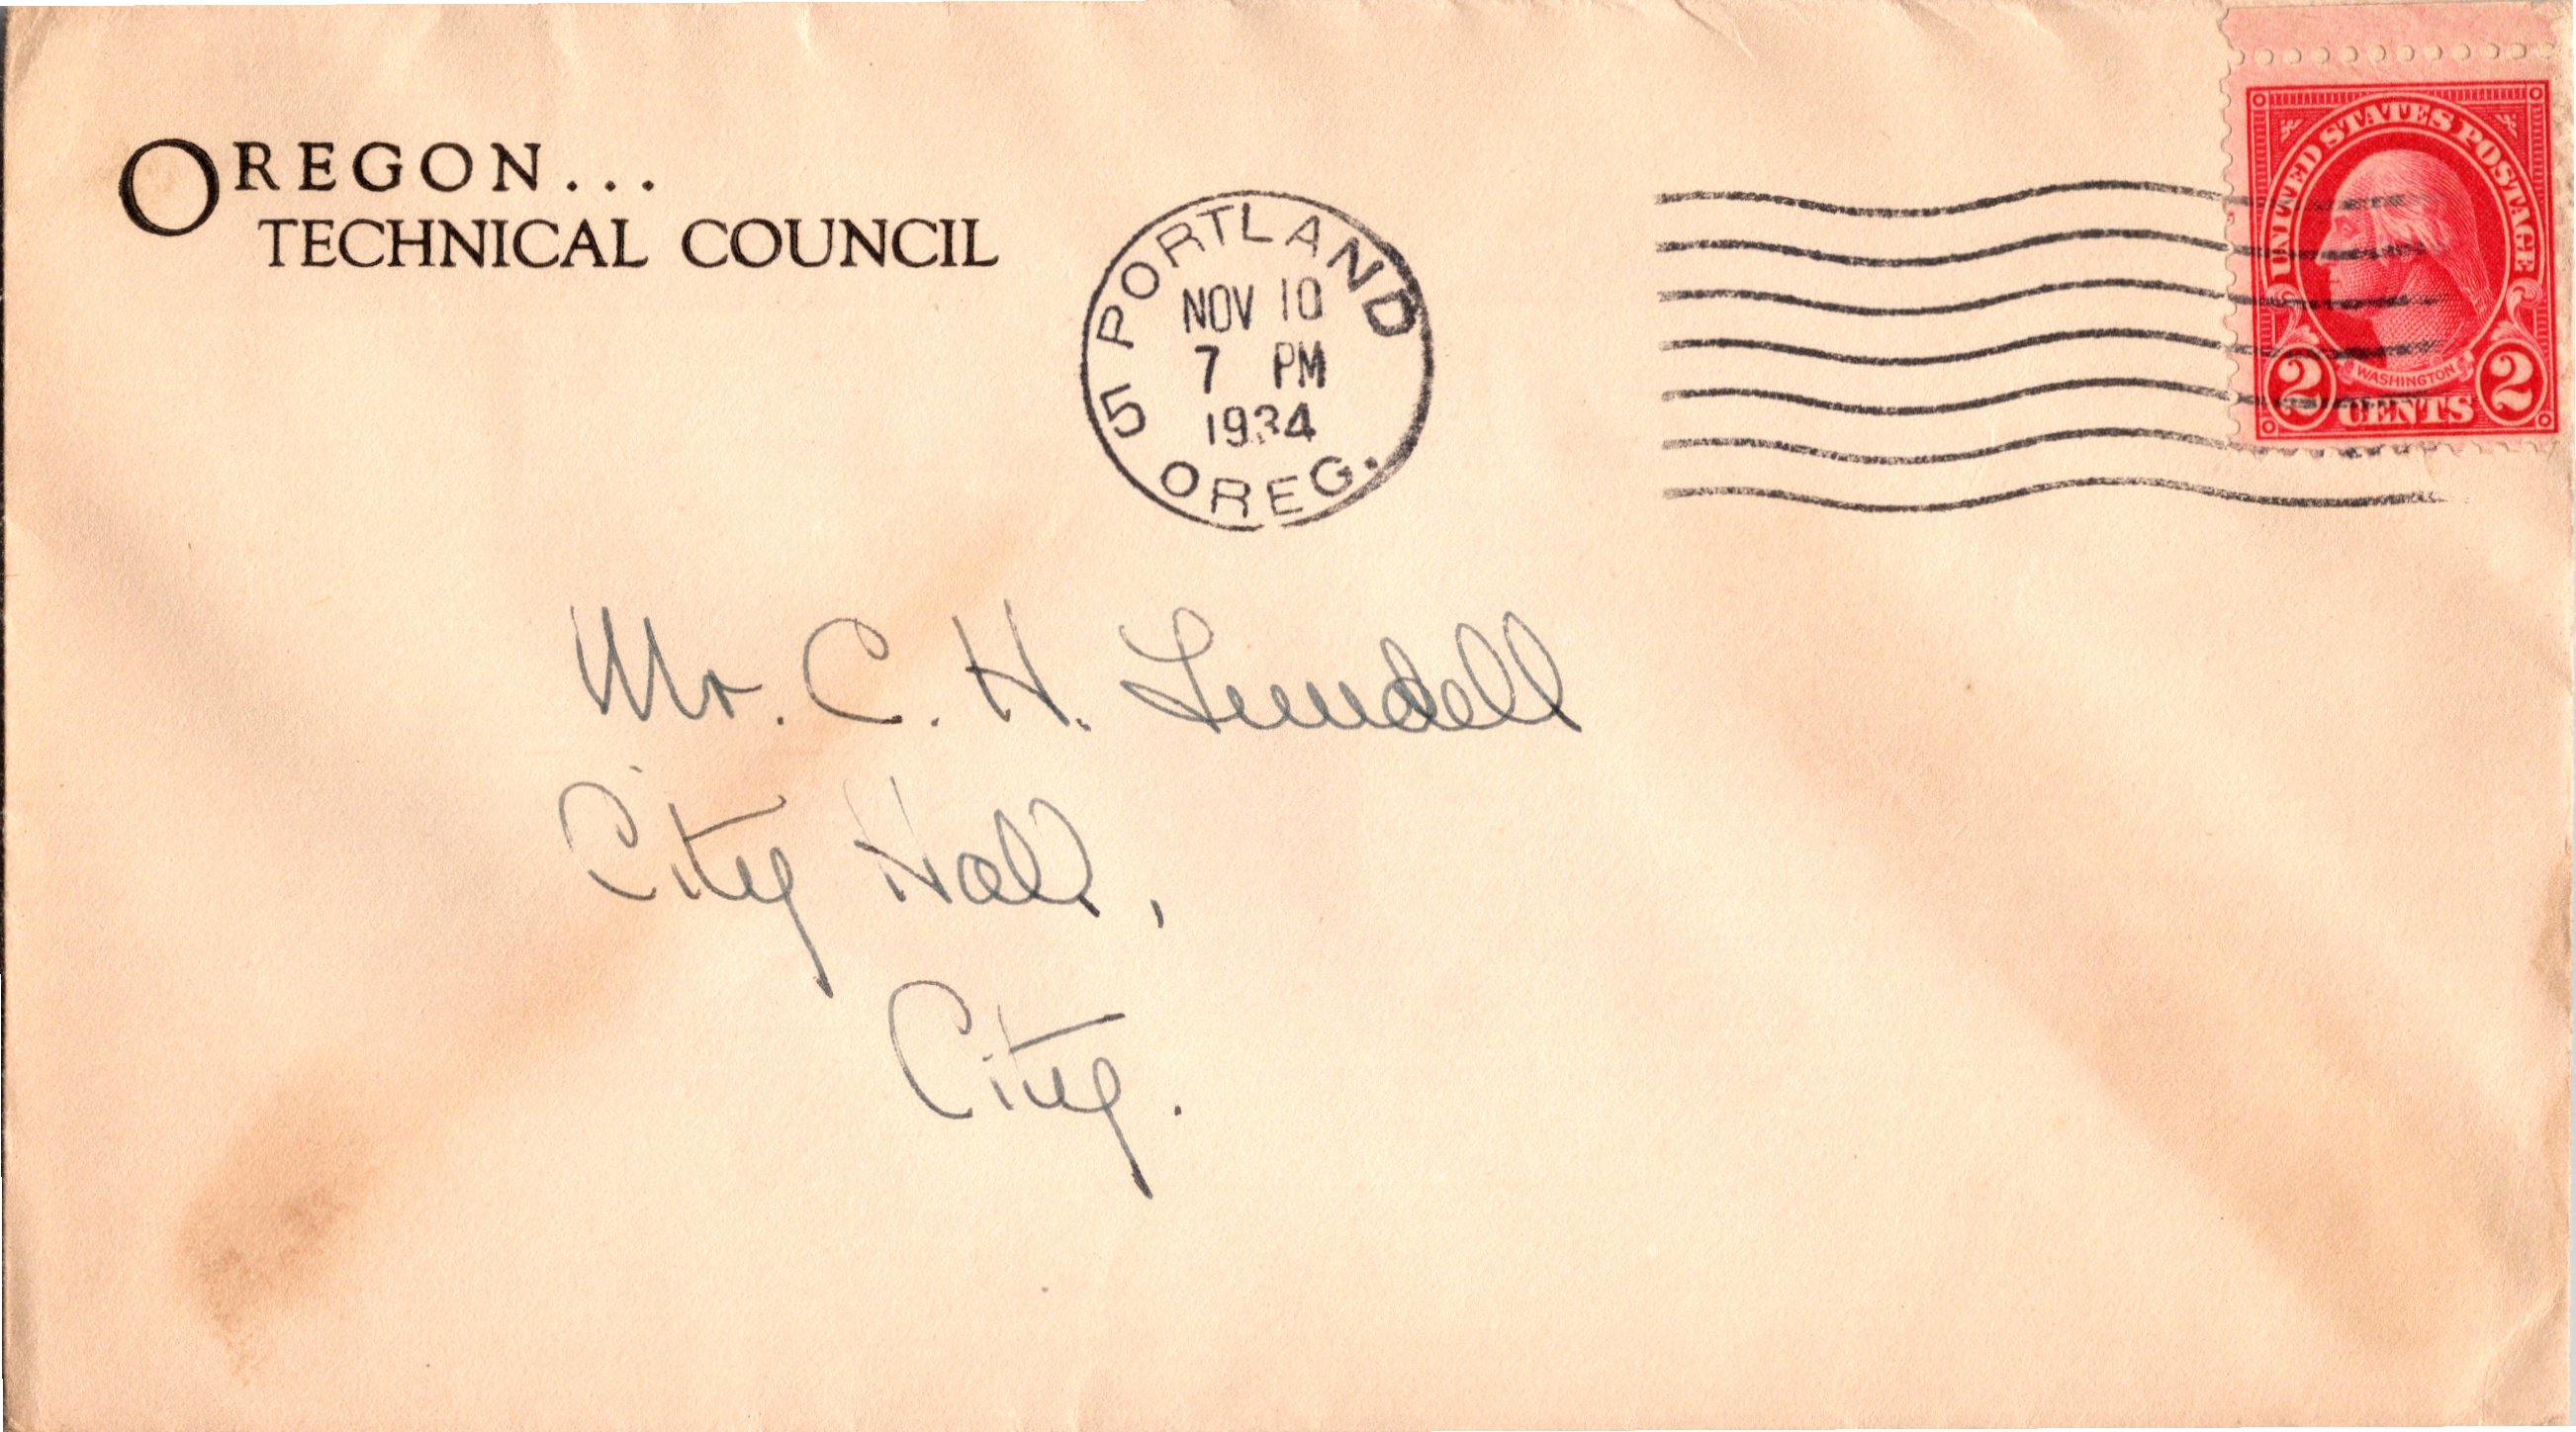 OREGON...
TECHNICAL COUNCIL
PORTLAND
NOV 10
7 PM
1934
5
OREG.
UNITED STATES POSTAGE
WASHINGTON
2 CENTS 2
Mr. C. H. Lundell
City Hall,
City.